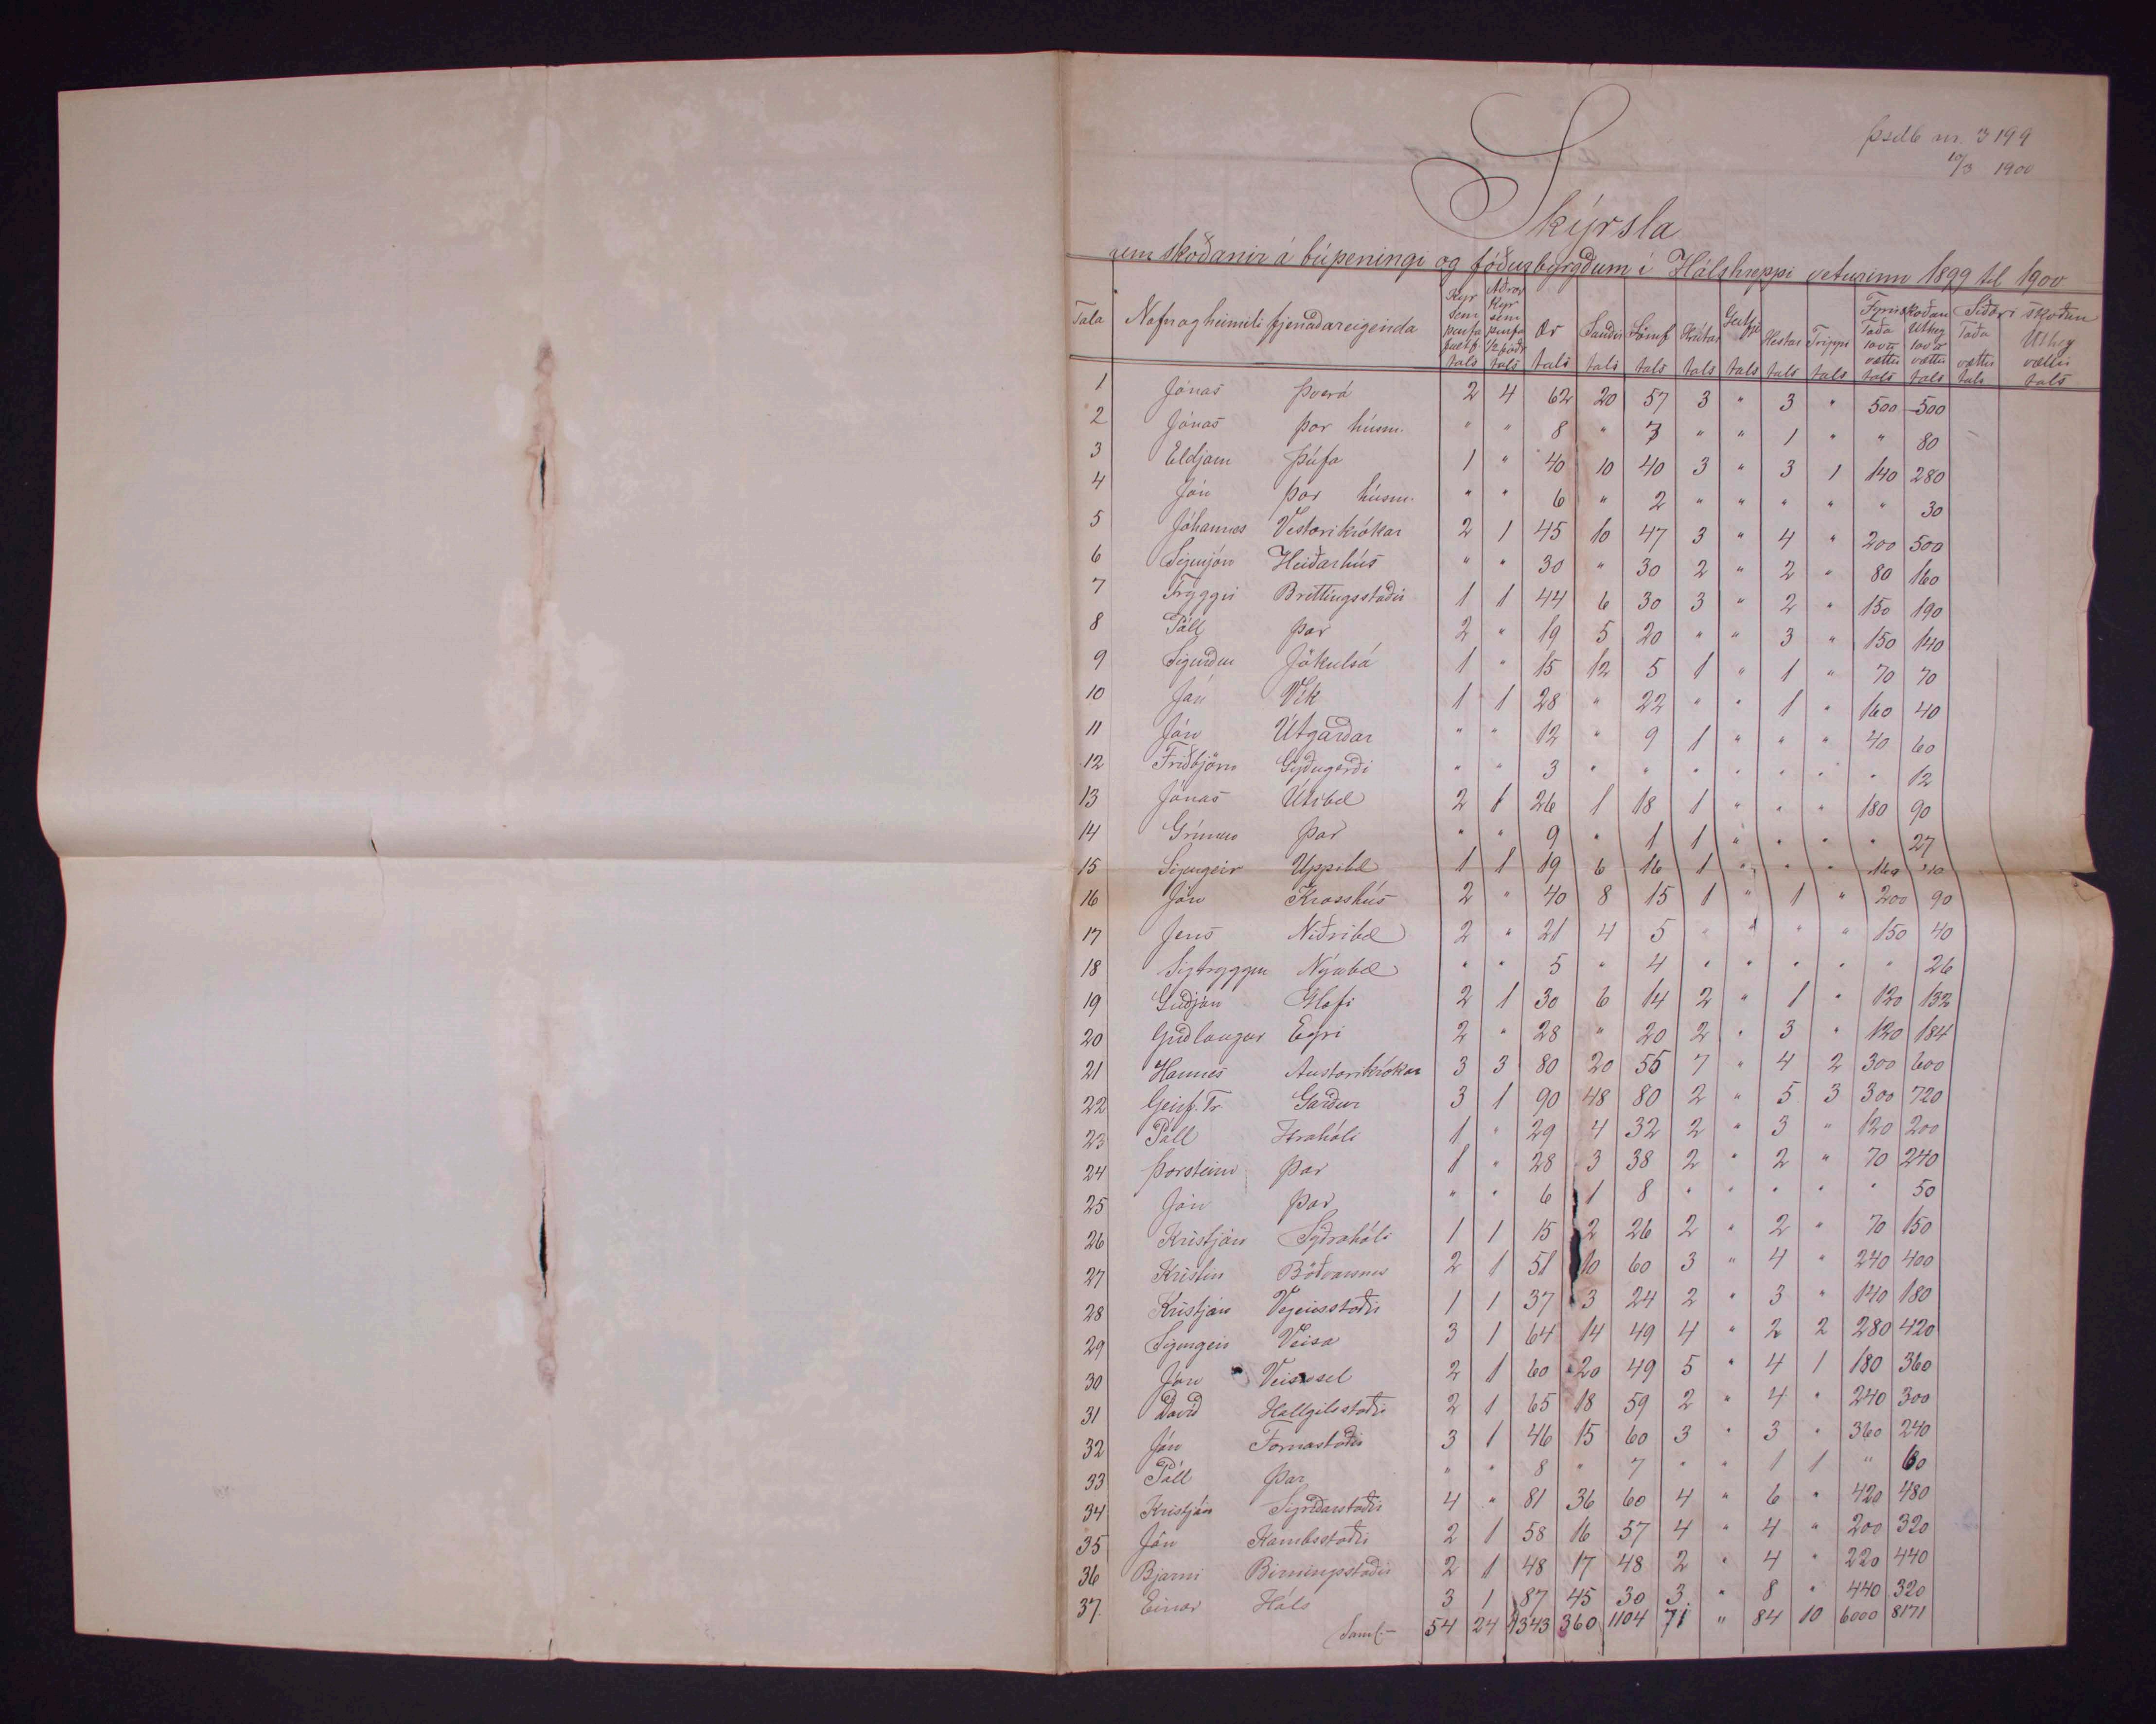 þsdb nr. 3 199
10/3 1900
Skýrsla
um skoðanir á búpeningi og fóðurbyrgðum í Hálshreppi veturinn 1899 til 1900
Tala Nöfn og heimili fjenaðareigenda Kýr sem þurfa tals Aðrar Kýr sem þurfa 1/2 fóðr tals Ær tals Sauðir tals Lömb tals Hrútar tals tals Hestar tals Trippi tals Fyrri skoðun Taða vættir tals Úthey vættir tals Síðari skoðun Taða vættir tals Úthey vættir tals
1 Jónas Þverá 2 4 62 20 57 3 " 3 " 500 500
2 Jónas Þar húsm. " " 8 " 7 " " 1 " " 80
3 Eldjarn Þúfa 1 " 40 10 40 3 " 3 1 140 280
4 Jón Þar húsm. " " 6 " 2 " " " " " 30
5 Jóhannes Vestarikrókar 2 1 45 10 47 3 " 4 " 200 500
6 Sigurjón Heiðarhús " " 30 " 30 2 " 2 " 80 160
7 Tryggvi Brettingsstaðir 1 1 44 6 30 3 " 2 " 150 190
8 Páll Þar 2 " 19 5 20 " " 3 " 150 140
9 Sigurður Jökulsá 1 " 15 12 5 1 " 1 " 70 70
10 Jón Vík 1 1 28 " 22 " " 1 " 160 40
11 Jón Útgarðar " " 12 " 9 1 " " " 40 60
12 Friðbjörn Gyðugerði " " 3 " " " " " " " 12
13 Jónas Útibæ 2 1 26 1 18 1 " " " 180 90
14 Grímur Þar " " 9 " 1 1 " " " " 27
15 Sigurgeir Uppibæ 1 1 19 6 16 1 " " " 160
16 Jón Krosshús 2 " 40 8 15 1 " 1 " 200 90
17 Jens Niðribæ 2 " 21 4 5 " " " " 150 40
18 Sigtryggur Nýabæ " " 5 " 4 " " " " " 26
19 Guðjón Hofi 2 1 30 6 14 2 " 1 " 120 132
20 Guðlaugur Eyri 2 " 28 " 20 2 " 3 " 120 184
21 Hannes Austarikrókar 3 3 80 20 55 7 " 4 2 300 600
22 Geirf. Tr Garður 3 1 90 48 80 2 " 5 3 300 720
23 Páll 1 " 29 4 32 2 " 3 " 120 200
24 Þorsteinn Þar 1 " 28 3 38 2 " 2 " 70 240
25 Jón Þar " " 6 1 8 " " " " " 50
26 Kristján Syðrahóli 1 1 15 2 26 2 " 2 " 70 150
27 Kristín Böðvarsnes 2 1 51 10 60 3 " 4 " 240 400
28 Kristján Vegeirsstaðir 1 1 37 3 24 2 " 3 " 140 180
29 Sigurgeir Veisa 3 1 64 14 49 4 " 2 2 280 420
30 Jón Veisusel 2 1 60 20 49 5 " 4 1 180 360
31 Davíð Hallgilsstaðir 2 1 65 18 59 2 " 4 " 240 300
32 Jón Fornastaðir 3 1 46 15 60 3 " 3 " 360 240
33 Páll Þar " " 8 " 7 " " 1 1 " 60
34 Kristján Sigríðarstaðir 4 " 81 36 60 4 " 6 " 420 480
35 Jón Kambsstaðir 2 1 58 16 57 4 " 4 " 200 320
36 Bjarni Birningsstaðir 2 1 48 17 48 2 " 4 " 220 440
37. Einar Háls 3 1 87 45 30 3. " 8 " 440 320
Saml:- 54 24 1343 360 1104 71 " 84 10 6000 8171